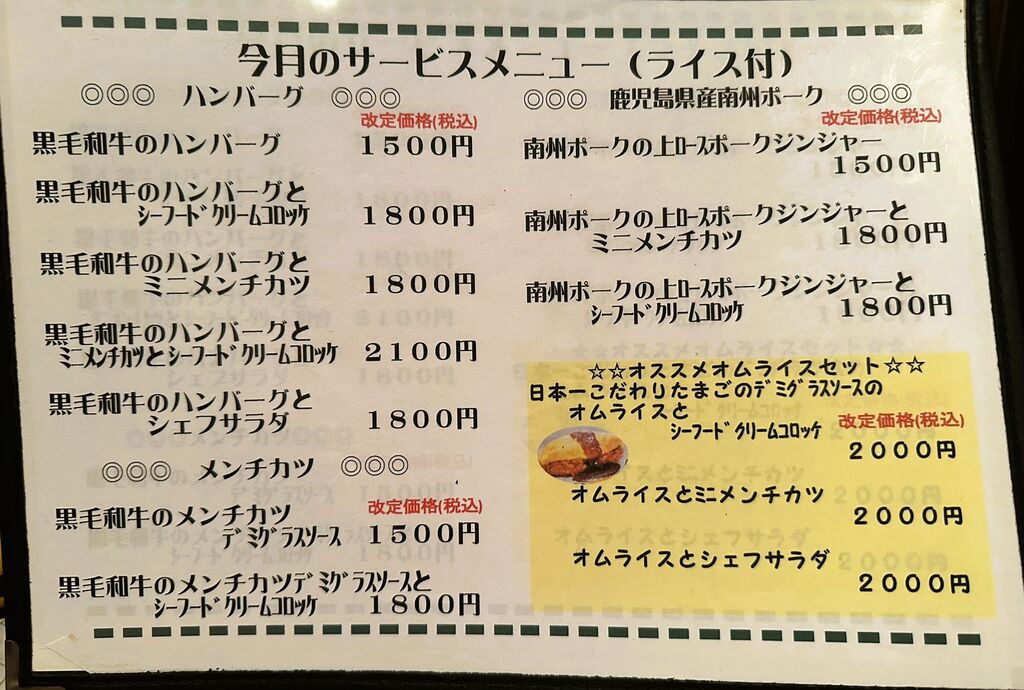 今月のサービスメニュー（ライス付）
◎◎◎　ハンバーグ　◎◎◎
改定価格(税込)
黒毛和牛のハンバーグ　１５００円
黒毛和牛のハンバーグと
ｼｰﾌｰﾄﾞｸﾘｰﾑｺﾛｯｹ　１８００円
黒毛和牛のハンバーグと
ミニメンチカツ　１８００円
黒毛和牛のハンバーグと
ミニメンチカツとｼｰﾌｰﾄﾞｸﾘｰﾑｺﾛｯｹ　２１００円
黒毛和牛のハンバーグと
シェフサラダ　１８００円
◎◎◎　メンチカツ　◎◎◎
改定価格(税込)
黒毛和牛のメンチカツ
ﾃﾞﾐｸﾞﾗｽｿｰｽ　１５００円
黒毛和牛のメンチカツﾃﾞﾐｸﾞﾗｽｿｰｽと
ｼｰﾌｰﾄﾞｸﾘｰﾑｺﾛｯｹ　１８００円
◎◎◎　鹿児島県産南州ポーク　◎◎◎
改定価格(税込)
南州ポークの上ﾛｰｽポークジンジャー
１５００円
南州ポークの上ﾛｰｽポークジンジャーと
ミニメンチカツ　１８００円
南州ポークの上ﾛｰｽポークジンジャーと
ｼｰﾌｰﾄﾞｸﾘｰﾑｺﾛｯｹ　１８００円
☆☆オススメオムライスセット☆☆
日本一こだわりたまごのﾃﾞﾐｸﾞﾗｽソースの
オムライスと　改定価格(税込)
ｼｰﾌｰﾄﾞｸﾘｰﾑｺﾛｯｹ
２０００円
オムライスとミニメンチカツ
２０００円
オムライスとシェフサラダ
２０００円